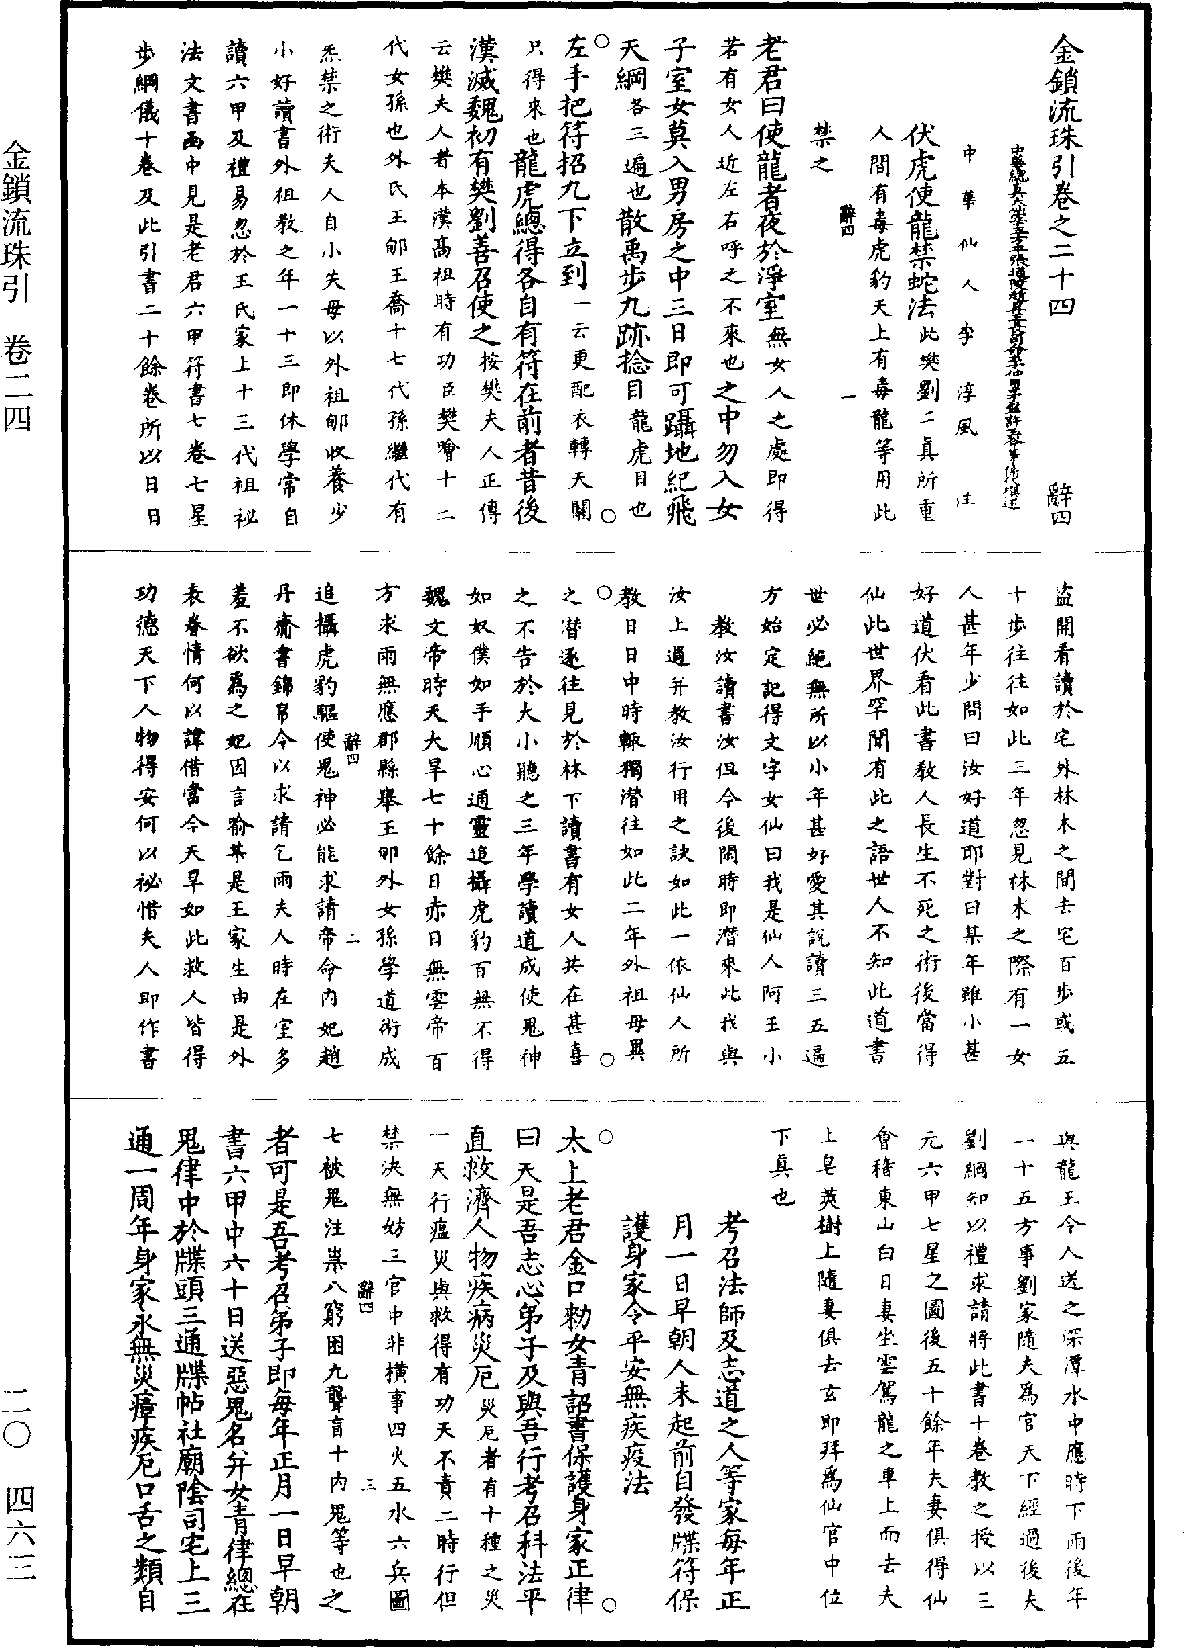 金鎖流珠引卷之二十四　辭四
中華仙人李淳風注
伏虎使龍禁蛇法此樊劉二真所重
人間有毒虎豹天上有毒龍等用此
禁之
辭四　一
老君曰使龍者夜於淨室無女人之處即得
若有女人近左右呼之不來也之中勿入女
子室女莫入男房之中三日即可躡地紀飛
天綱各三遍也散禹步九跡捻目龍虎目也
左手把符招九下立到一云更配衣轉天關
只得來也龍虎總得各自有符在前者昔後
漢滅魏初有樊劉善召使之按樊夫人正傳
云樊夫人者本漢高祖時有功臣樊噲十二
代女孫也外氏王郇王喬十七代孫繼代有
炁禁之術夫人自小失母以外祖郇收養少
小好讀書外祖教之年一十三即休學常自
讀六甲及禮易忽於王氏家上十三代祖祕
法文書函中見是老君六甲符書七卷七星
步綱儀十卷及此引書二十餘卷所以日日
盜開看讀於宅外林木之間去宅百步或五
十步往往如此三年忽見林木之際有一女
人甚年少問曰汝好道耶對曰某年雖小甚
好道伏看此書教人長生不死之術後當得
仙此世界罕聞有此之語世人不知此道書
世必絕無所以小年甚好愛其說讀三五遍
方始定記得文字女仙曰我是仙人阿王小
教汝讀書汝但今後閑時即潛來此我與
汝上過并教汝行用之訣如此一依仙人所
教日日中時輒獨潛往如此二年外祖母異
之潛逐往見於林下讀書有女人共在甚喜
之不告於大小聽之三年學讀道成使鬼神
如奴僕如手順心通靈追攝虎豹百無不得
魏文帝時天大旱七十餘日赤日無雲帝百
方求雨無應郡縣舉王郇外女孫學道術成
辭四　二
追攝虎豹驅使鬼神必能求請帝命內妃趙
丹齎書錦帛令以求請乞雨夫人時在室多
羞不欲爲之妃因言喻某是王家生由是外
表眷情何以諱借當今天旱如此救人皆得
功德天下人物得安何以祕惜夫人即作書
與龍王令人送之深潭水中應時下雨後年
一十五方事劉家隨夫爲官天下經過後夫
劉綱知以禮求請將此書十卷教之授以三
元六甲七星之圖後五十餘年夫妻俱得仙
會稽東山白日妻坐雲駕龍之車上而去夫
上皂莢樹上隨妻俱去玄即拜爲仙官中位
下真也
考召法師及志道之人等家每年正
月一日早朝人未起前自發牒符保
護身家令平安無疾疫法
太上老君金口勑女青詔書保護身家正律
曰天是吾志心弟子及與吾行考召科法平
直救濟人物疾病災厄災厄者有十種之災
一天行瘟災與救得有功天不責二時行但
禁決無妨三官中非橫事四火五水六兵圖
辭四　三
七被鬼注祟八窮困九聾盲十內鬼等也之
者可是吾考召弟子即每年正月一日早朝
書六甲中六十日送惡鬼名并女青律總在
鬼律中於牒頭三通牒帖社廟陰司宅上三
通一周年身家永無災瘴疾厄口舌之類自
金鎖流珠引　卷二四
二〇　四六三